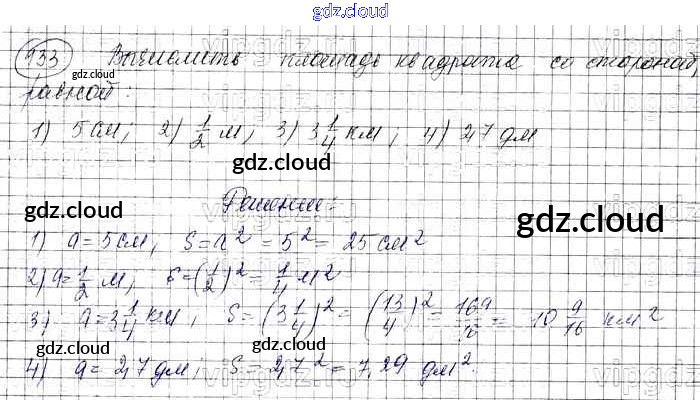 gdz.cloud
933 Вычислить площадь квадрата со стороной,
gdz.cloud
равной:
1) 5 см; 2) 1/2 м; 3) 3 1/4 км; 4) 2,7 дм
gdz.cloud
Решение:
gdz.cloud gdz.cloud gdz.cloud
1) a = 5 см, S = a² = 5² = 25 см²
2) a = 1/2 м, S = (1/2)² = 1/4 м²
gdz.cloud gdz.cloud
3) a = 3 1/4 км, S = (3 1/4)² = (13/4)² = 169/16 = 10 9/16 км²
gdz.cloud gdz.cloud
4) a = 2,7 дм; S = 2,7² = 7,29 дм².
gdz.cloud